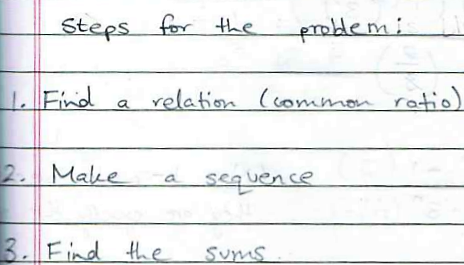 Steps for the problem:
1. Find a relation (common ratio)
2. Make a sequence
3. Find the sums